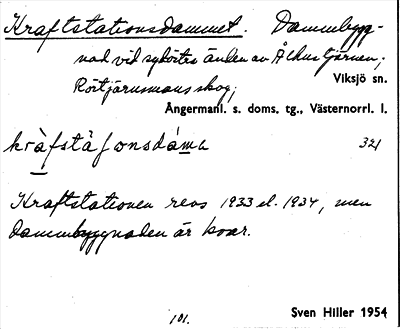 Kraftstationsdammet. Dammbygg-
nad vid sydöstra änden av Åkustjärnen;
Viksjö sn.
Rörtjärnsmons skog;
Ångermanl. s. doms. tg., Västernorrl. l.
kràfstāʃonsdáma 321
Kraftstationen revs 1933 el. 1934, men
dammbyggnaden är kvar.
101. Sven Hiller 1954